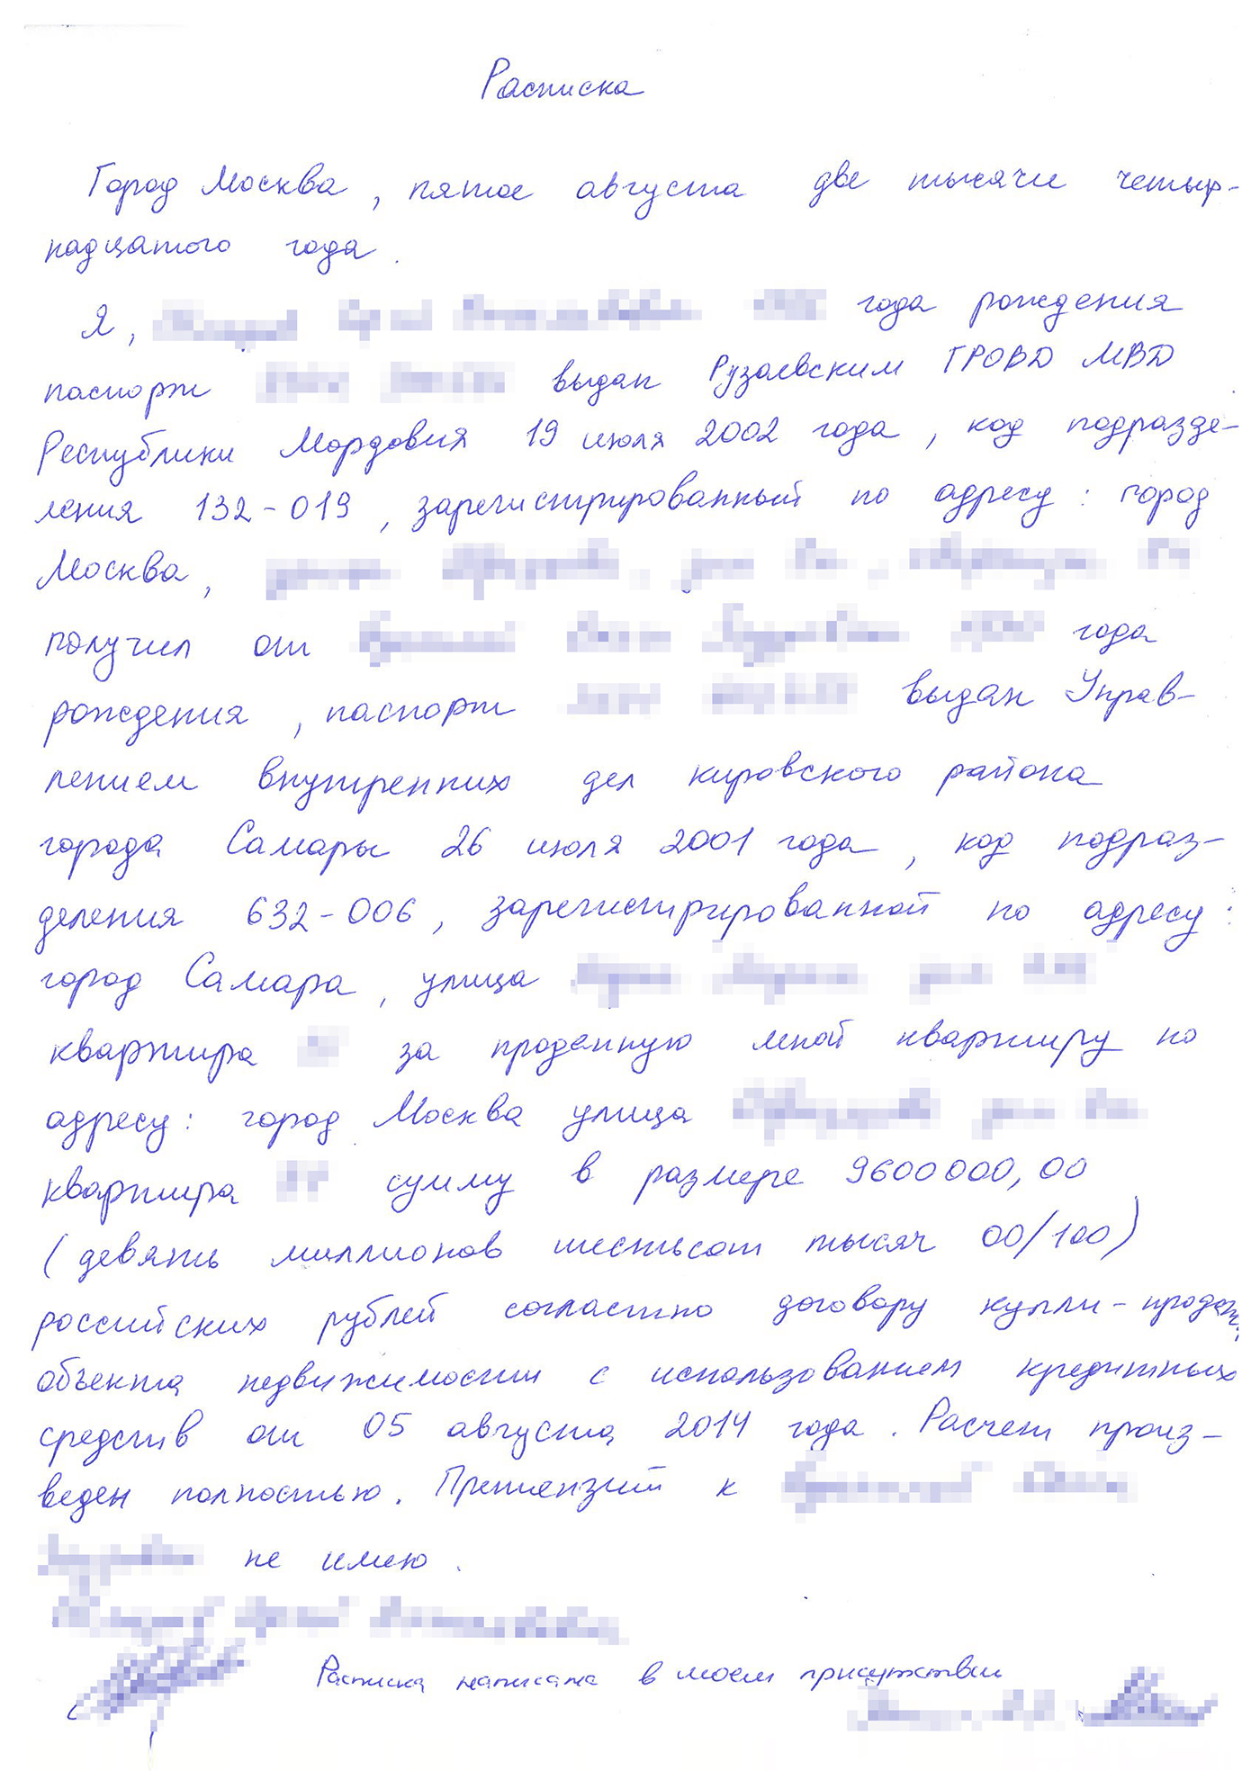 Расписка
Город Москва, пятое августа две тысячи четыр-
надцатого года.
Я, года рождения
паспорт выдан Рузаевским ГРОВД МВД
Республики Мордовия 19 июля 2002 года, код подразде-
ления 132-019, зарегистрированный по адресу: город
Москва,
получил от года
рождения, паспорт выдан Управ-
лением внутренних дел кировского района
города Самары 26 июля 2001 года, код подраз-
деления 632-006, зарегистрированной по адресу:
город Самара, улица
квартира за проданную мной квартиру по
адресу: город Москва улица
квартира сумму в размере 9600000,00
(девять миллионов шестьсот тысяч 00/100)
российских рублей согласно договору купли-продаж.
объекта недвижимости с использованием кредитных
средств от 05 августа 2014 года. Расчет произ-
веден полностью. Претензий к
не имею.
Расписка написана в моем присутствии